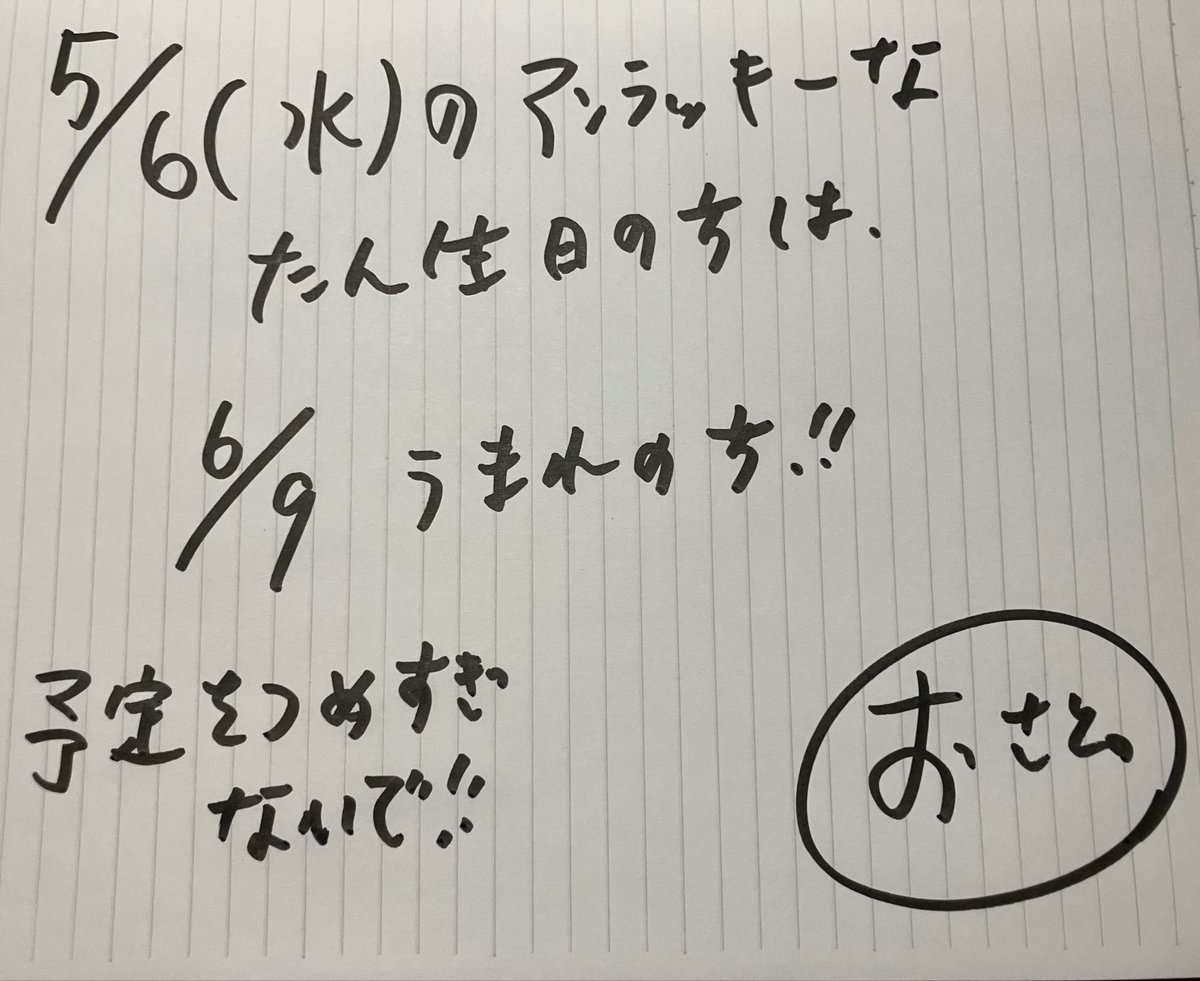 5/6(水)のアンラッキーな
たん生日の方は、
6/9 うまれの方!!
予定をつめすぎ
ないで!!
おさむ